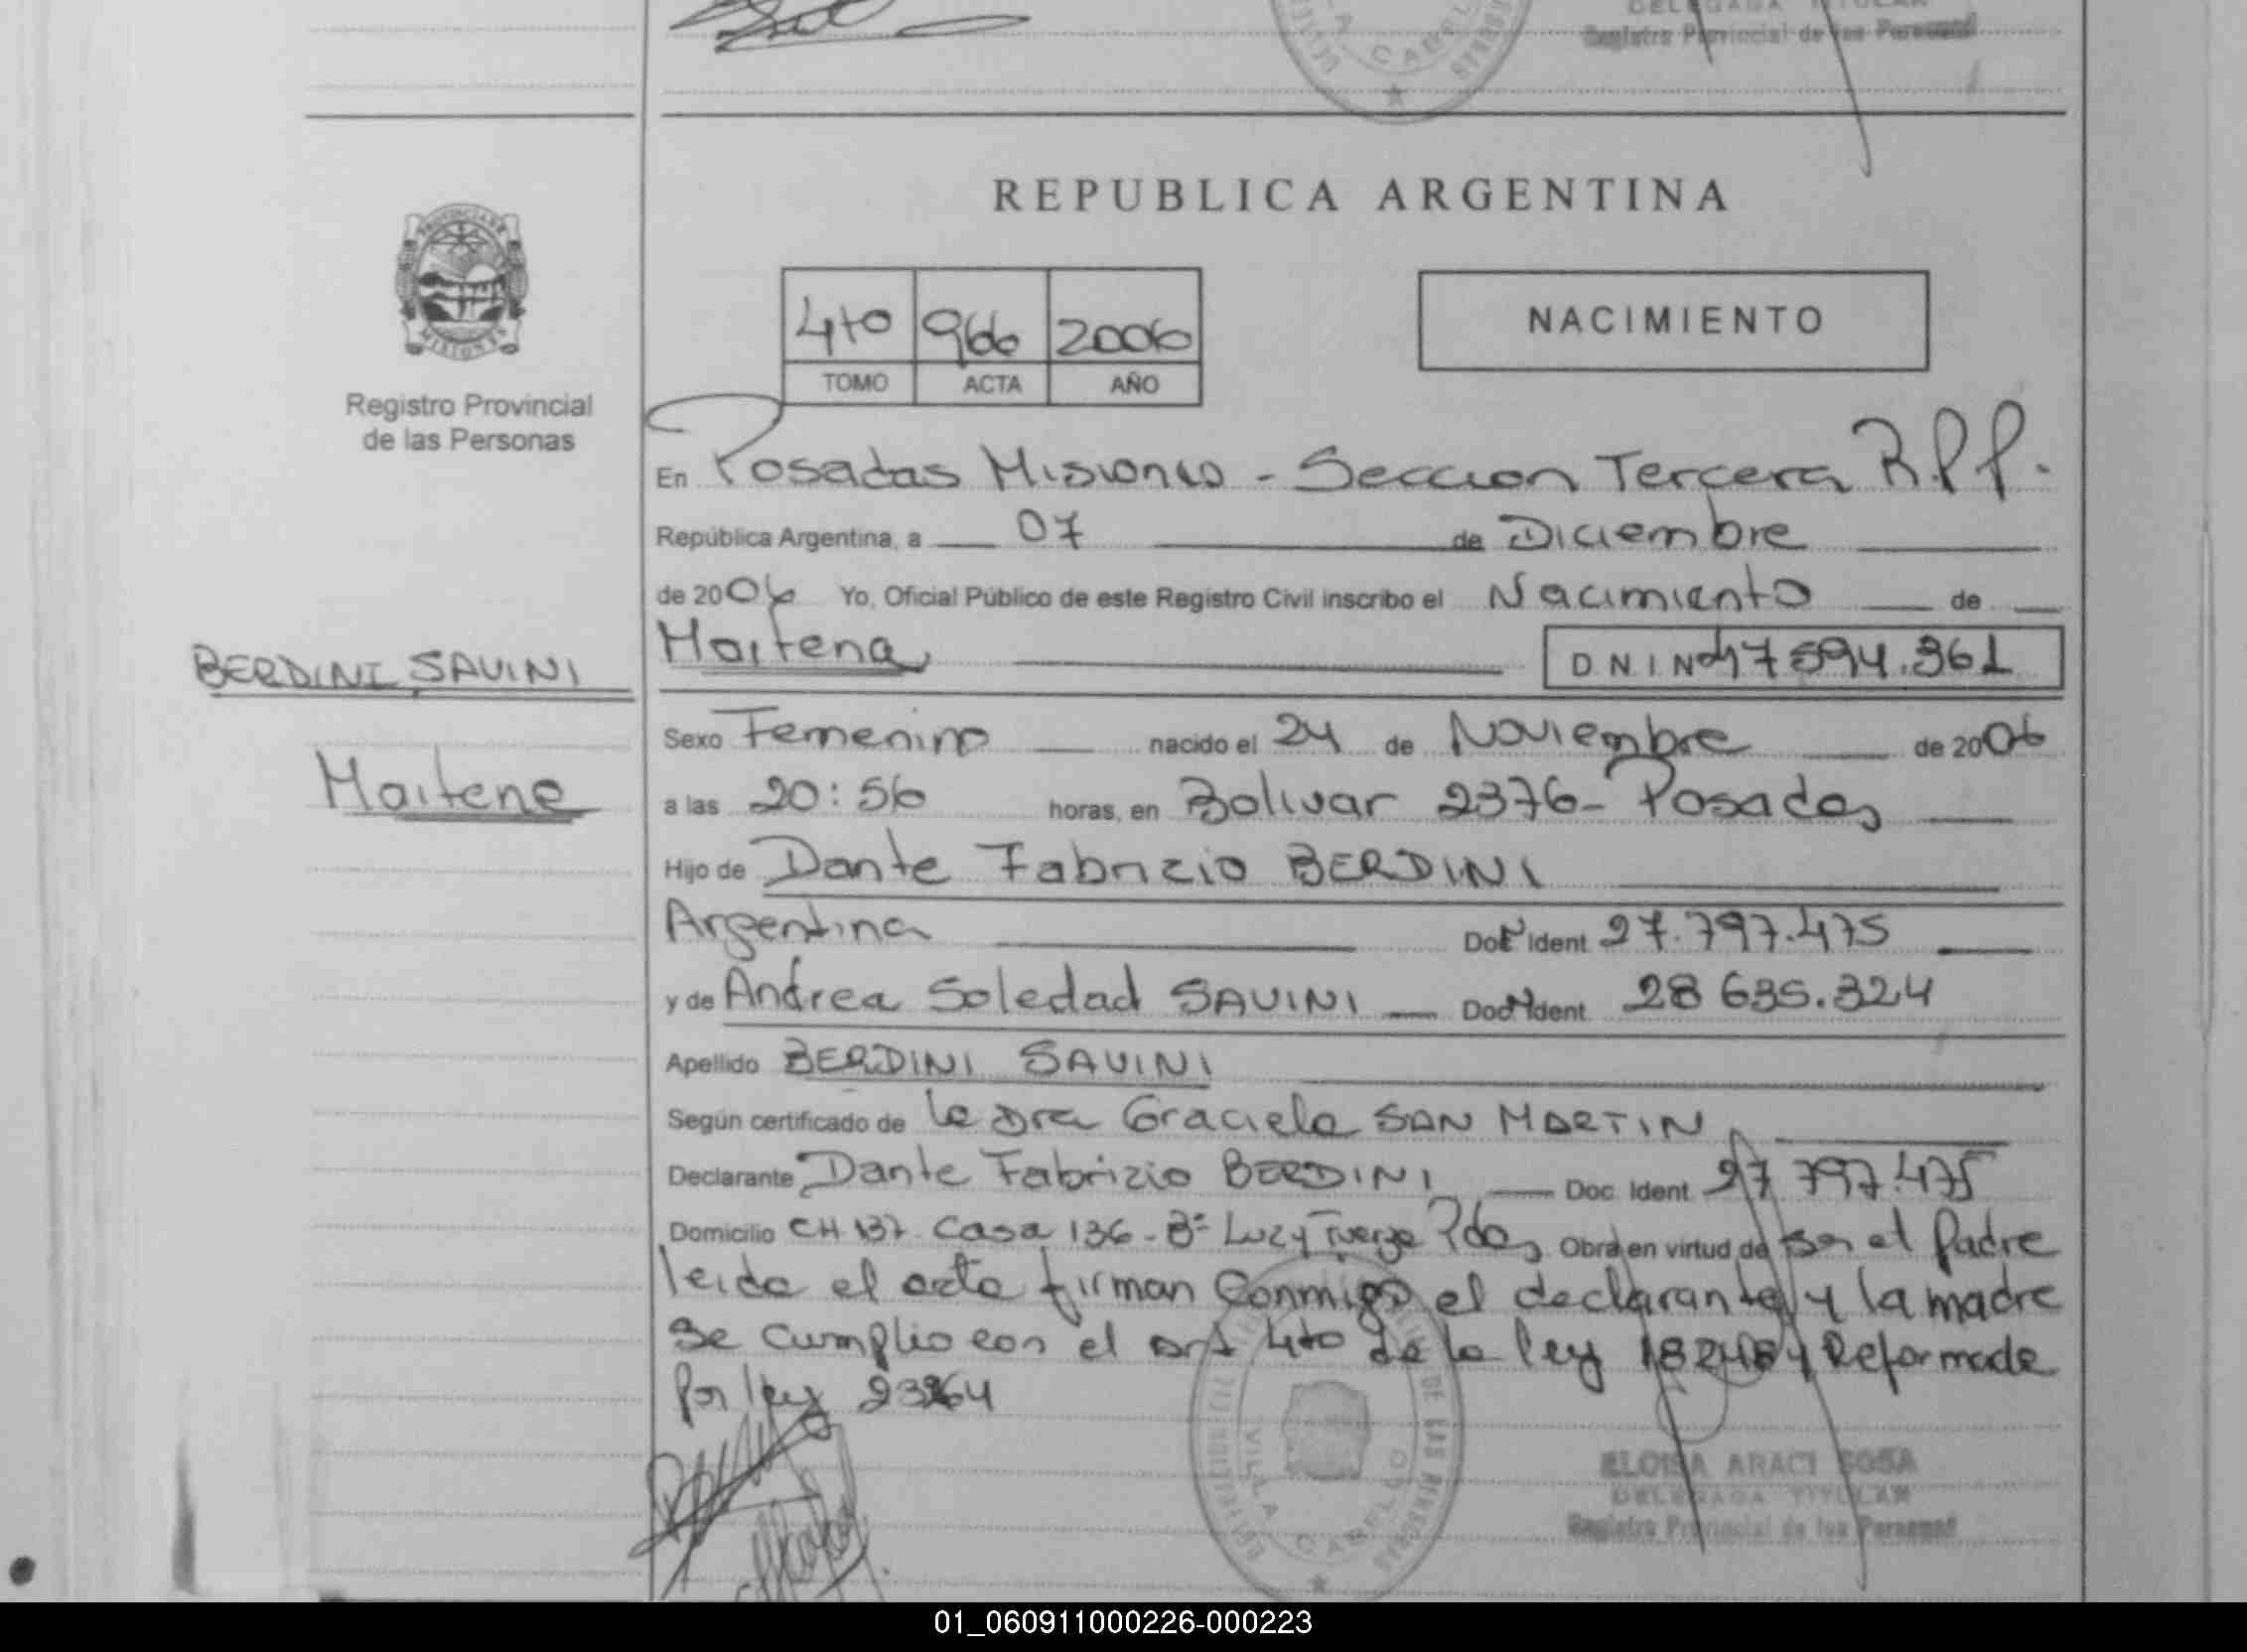 DELEGADA TITULAR
Registro Provincial de las Personas
VILLA CABELLO
REPUBLICA ARGENTINA
PROVINCIA DE MISIONES
4to 966 2006
TOMO ACTA AÑO
NACIMIENTO
Registro Provincial
de las Personas
En Posadas Misiones - Seccion Tercera R.P.P.
República Argentina, a 07 de Diciembre
de 2006 Yo, Oficial Público de este Registro Civil inscribo el Nacimiento de
Maitena D.N.I. Nº 47 594.361
BERDINI SAVINI
Sexo Femenino nacido el 24 de Noviembre de 2006
Maitena
a las 20:56 horas, en Bolivar 2376- Posadas
Hijo de Dante Fabrizio BERDINI
Argentina Doc Ident 27.797.475
y de Andrea Soledad SAVINI Doc Ident 28 635.324
Apellido BERDINI SAVINI
Según certificado de la Dra Graciela SAN MARTIN
Declarante Dante Fabrizio BERDINI Doc Ident 27 797.475
Domicilio CH 137 Casa 136 - Bº Luz y Fuerza Pdas Obra en virtud de ser el Padre
leida el acta firman conmigo el declarante y la madre
se cumplio con el art 4to de la ley 18248 y Reformada
por ley 23264
VILLA CABELLO
ELOISA ARACI SOSA
DELEGADA TITULAR
Registro Provincial de las Personas
01_060911000226-000223